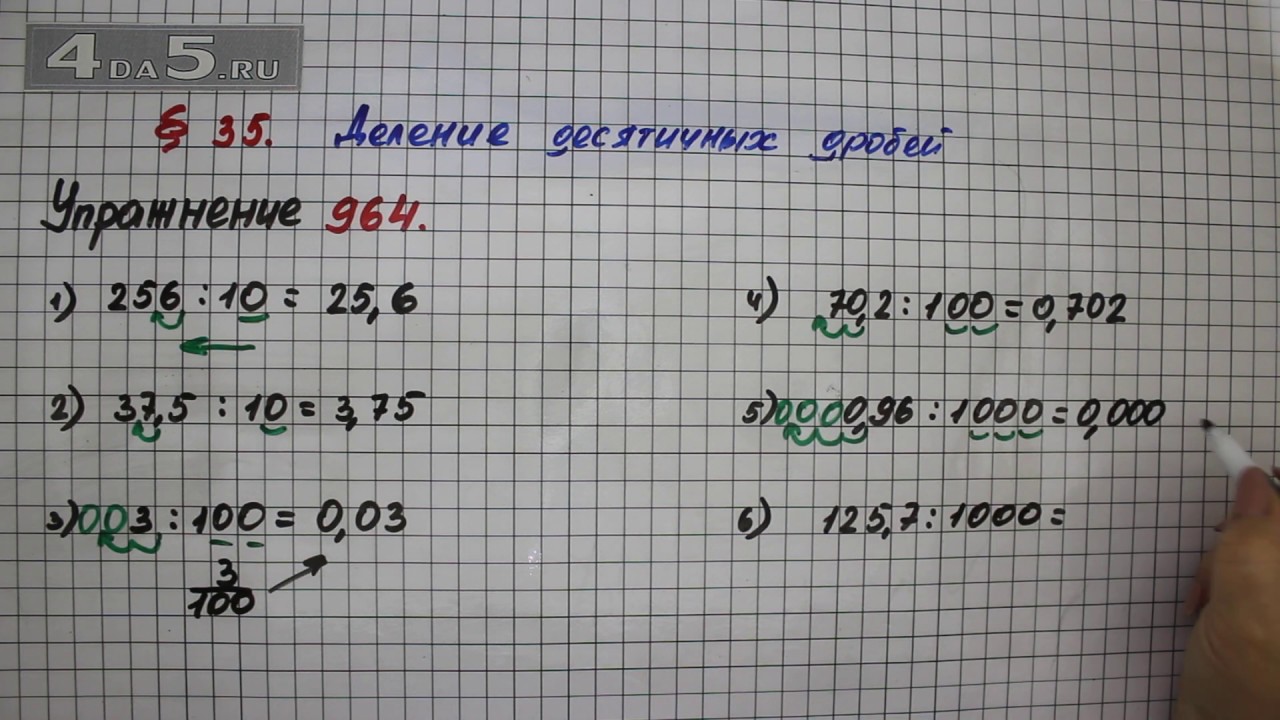 4DA5.RU
§ 35. Деление десятичных дробей
Упражнение 964.
1) 256 : 10 = 25,6
2) 37,5 : 10 = 3,75
3) 003 : 100 = 0,03
3
100
4) 70,2 : 100 = 0,702
5) 0000,96 : 1000 = 0,000
6) 125,7 : 1000 =